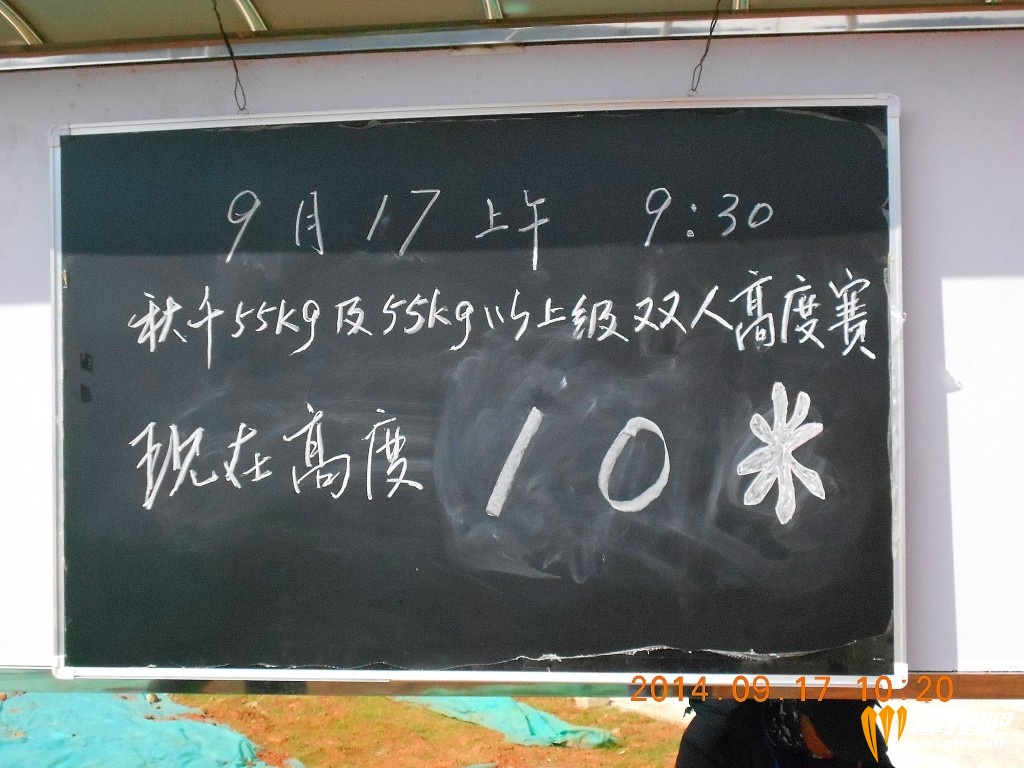 9月17上午 9:30
秋千55kg及55kg以上级双人高度赛
现在高度 10米
2014.09.17 10:20